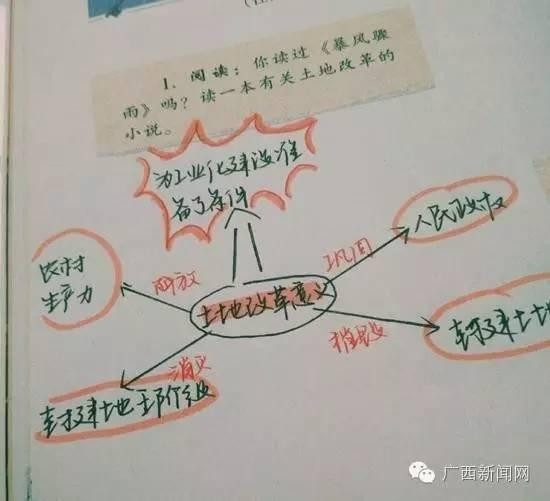 1. 阅读：你读过《暴风骤
雨》吗？读一本有关土地改革的
小说。
为工业化建设准
备了条件
人民政权
巩固
农村
生产力
解放
土地改革意义
摧毁
封建土地
消灭
封建土地主阶级
广西新闻网